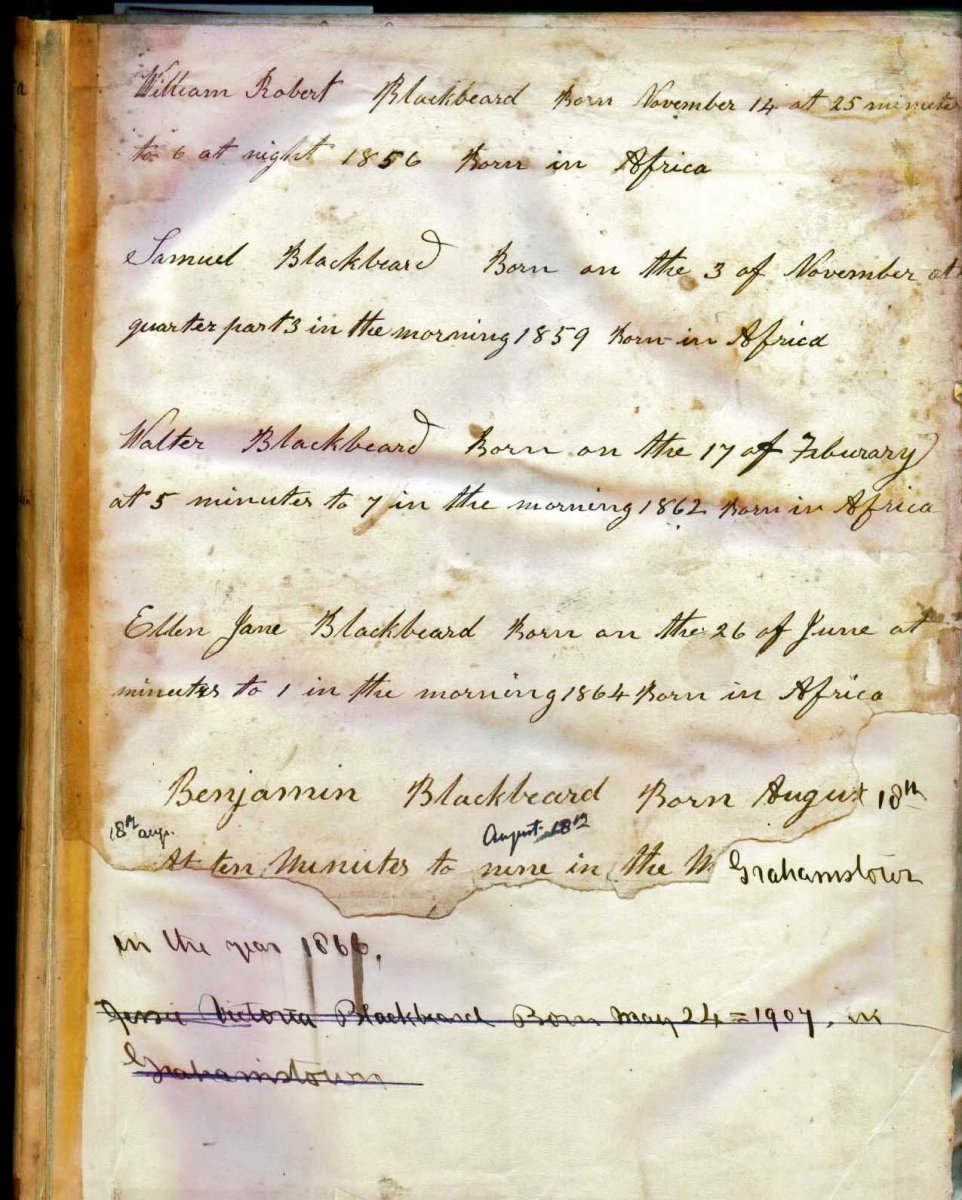 William Robert Blackbeard Born November 14 at 25 minutes
to 6 at night 1856 Born in Africa
Samuel Blackbeard Born on the 3 of November at
quarter part 3 in the morning 1859 Born in Africa
Walter Blackbeard Born on the 17 of Feburary
at 5 minutes to 7 in the morning 1862 Born in Africa
Ellen Jane Blackbeard Born on the 26 of June at
minutes to 1 in the morning 1864 Born in Africa
Benjamin Blackbeard Born August 18th
18th augs. August 18th
At ten Minutes to nine in the M Grahamstown
in the year 1866.
Jessie Victoria Blackbeard Born May 24 = 1907, in
Grahamstown